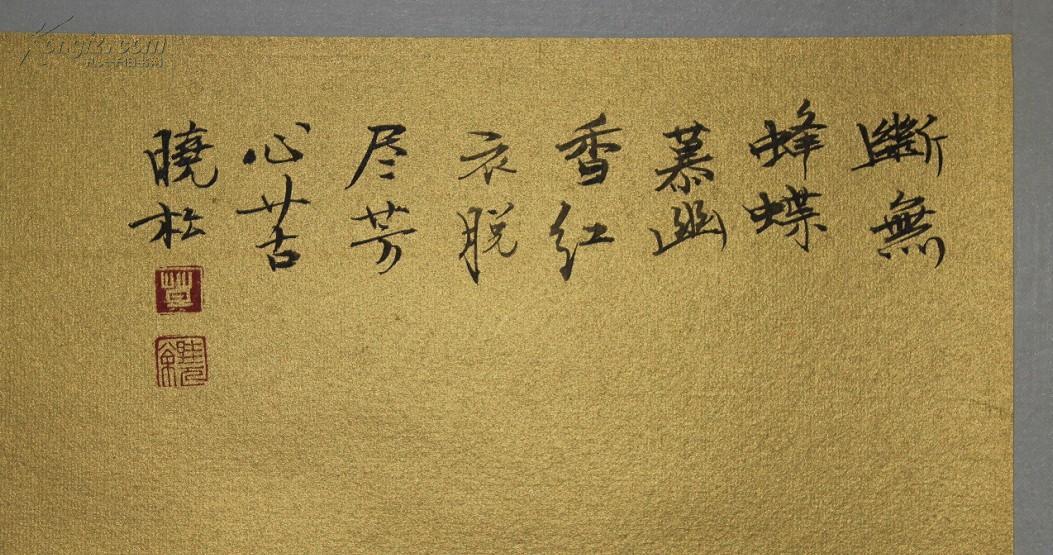 斷無
蜂蝶
慕幽
香红
衣脱
尽芳
心苦
曉松
Kongfz.com
孔夫子旧书网